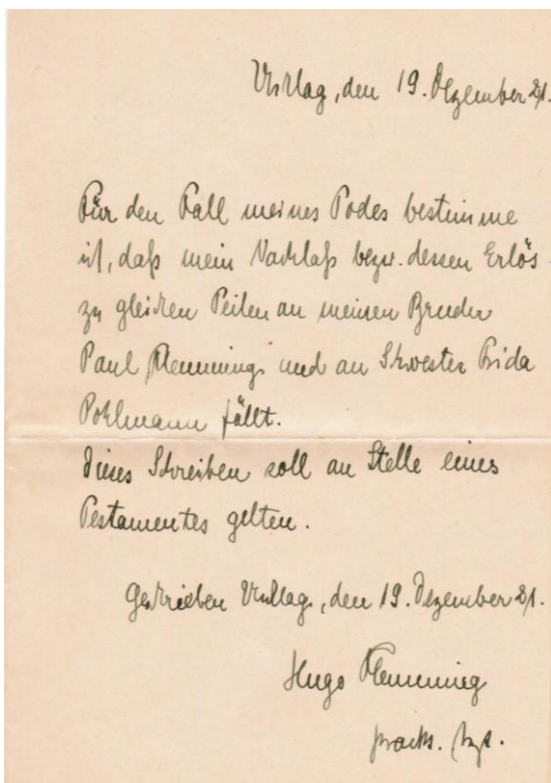 Uchtlag, den 19. Dezember 21.
Für den Fall meines Todes bestimme
ich, daß mein Nachlaß bezw. dessen Erlös
zu gleichen Teilen an meinen Bruder
Paul Flemming und an Schwester Frida
Pohlmann fällt.
Dieses Schreiben soll an Stelle eines
Testamentes gelten.
Geschrieben, den 19. Dezember 21.
Hugo Flemming
prackt. Arzt.